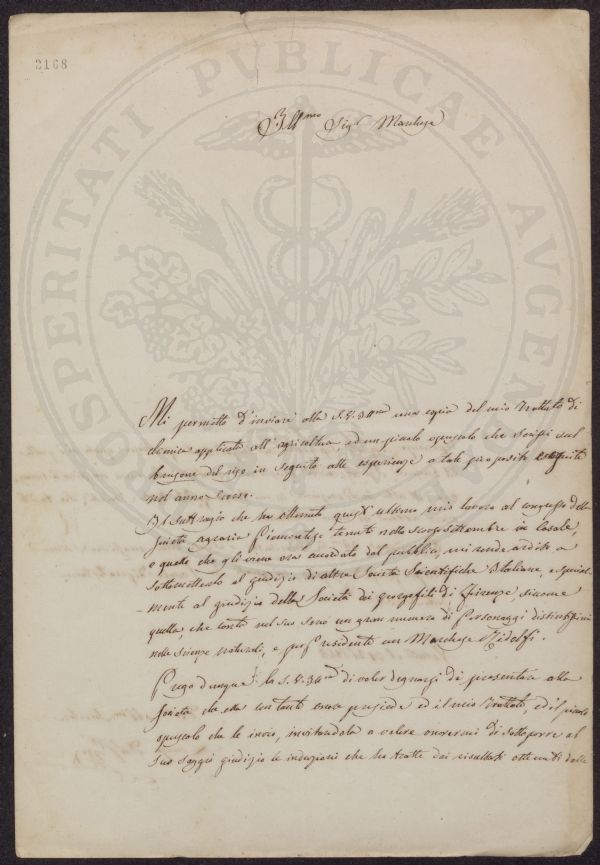 2168
PROSPERITATI PUBLICAE AVGENDAE
Ill.mo Sig.r Marchese
Mi permetto d'inviare alla S.V. Ill.ma una copia del mio Trattato di
chimica applicata all'agricoltura, ed un piccolo opuscolo che scrissi sul
brusone del riso in seguito alle esperienze a tale proposito eseguite
nel anno scorso.
Il suffragio che ha ottenuto quest'ultimo mio lavoro al congresso della
Società agraria Piemontese tenuto nello scorso settembre in Casale,
e quello che gli viene ora accordato dal pubblico, mi rende ardito a
sottometterlo al giudizio di altre Società Scientifiche Italiane, e special-
-mente al giudizio della Società dei georgofili di Firenze, siccome
quella che conta nel suo seno un gran numero di Personaggi distintissimi
nelle scienze naturali, e per Presidente un Marchese Ridolfi.
Prego dunque la S.V. Ill.ma di voler degnarsi di presentare alla
Società che ella con tanto onore presiede ed il mio Trattato, ed il piccolo
opuscolo che le invio, invitandola a volere onorarmi di sottoporre al
suo saggio giudizio le induzioni che ho tratte dai risultati ottenuti dalle